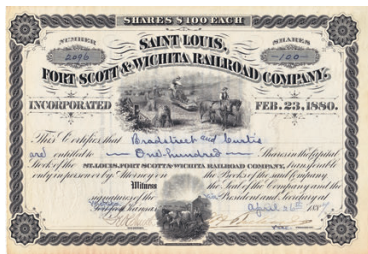 SHARES $100 EACH
NUMBER
2096
SHARES
-100-
SAINT LOUIS,
FORT SCOTT & WICHITA RAILROAD COMPANY,
INCORPORATED
FEB. 23, 1880.
This Certifies that Bradstreet and Curtis
are entitled to One hundred Shares in the Capital
Stock of the ST. LOUIS, FORT SCOTT & WICHITA RAILROAD COMPANY, Transferable
only in person or by Attorney on the Books of the said Company.
Witness the Seal of the Company and the
signatures of the President and Secretary at
Kansas April 26th